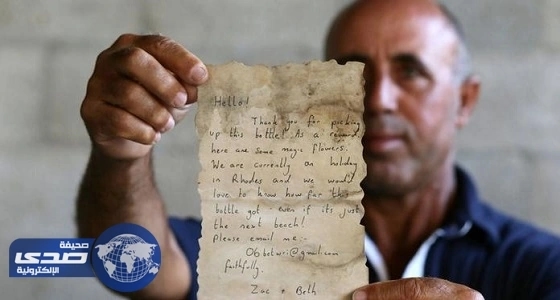 Hello!
Thank you for picking
up this bottle! As a reward
here are some magic flowers.
We are currently on holiday
in Rhodes and we would
love to know how far this
bottle got - even if its just
the next beach!
Please email me :-
@gmail.com
faithfully.
Zac + Beth
صحيفة
صدى
الإلكترونية